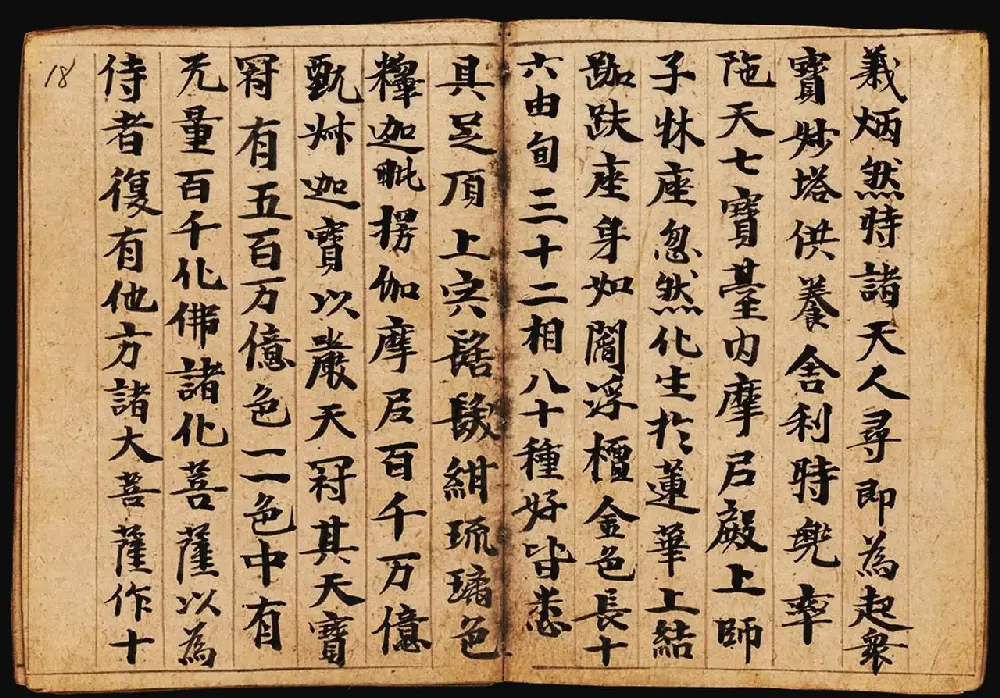 義炳然時諸天人尋即為起眾
寶妙塔供養舍利時兜率
陁天七寶臺内摩尼殿上師
子牀座忽然化生於蓮華上結
跏趺座身如閻浮檀金色長十
六由旬三十二相八十種好皆悉
具足頂上宍髻髮紺琉璃色
釋迦毗楞伽摩尼百千万億
甄叔迦寶以嚴天冠其天寶
冠有五百万億色一一色中有
无量百千化佛諸化菩薩以為
侍者復有他方諸大菩薩作十
18